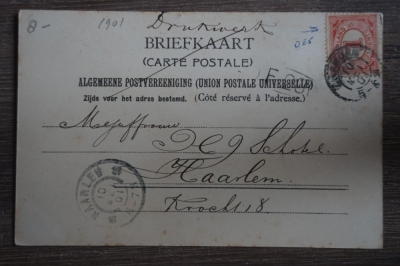 8-
1901
Drukwerk
BRIEFKAART
(CARTE POSTALE)
ALGEMEENE POSTVEREENIGING (UNION POSTALE UNIVERSELLE)
Zijde voor het adres bestemd. (Côté réservé à l'adresse.)
Mejuffrouw
Haarlem.
Krocht 18.
HAARLEM
1